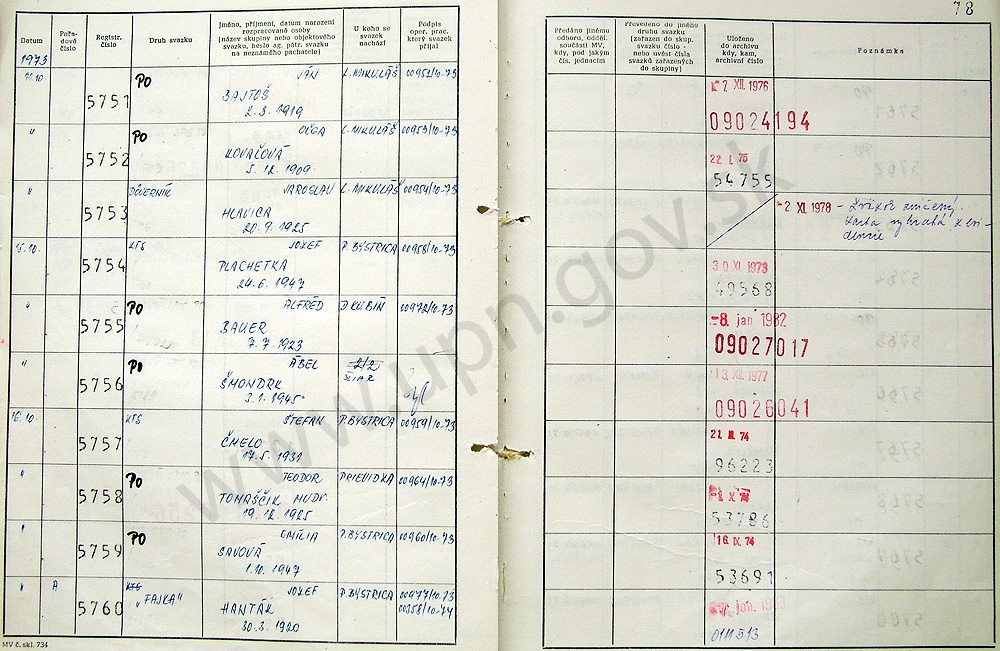 78
Datum
Pořa-
dové
číslo
Registr.
číslo
Druh svazku
Jméno, příjmení, datum narození
rozpracované osoby
(název skupiny nebo objektového
svazku, heslo ag. pátr. svazku
na neznámého pachatele)
U koho se
svazek
nachází
Podpis
oper. prac.
který svazek
přijal
Předáno jinému
odboru, odděl.
součásti MV,
kdy, pod jakým
čís. jednacím
Převedeno do jiného
druhu svazku
(zařazen do skup.
svazku číslo -
nebo uvést čísla
svazků zařazených
do skupiny)
Uloženo
do archivu
kdy, kam,
archivní číslo
Poznámka
1973
11.10. 5751 PO JÁN L. MIKULÁŠ 00952/10-73 2 XII. 1976
BAJTOŠ
2.3.1919 09024194
" 5752 PO OĽGA L. MIKULÁŠ 00953/10-73 22 I. 75
KOVAĽOVÁ 54755
5.12.1909
" 5753 DÔVERNÍK JAROSLAV L. MIKULÁŠ 00954/10-73 -2. XII. 1978 - Zväzok zničený.
HLAVICA Karta vybratá z evi-
20.9.1925 dencie
15.10. 5754 KTS JOZEF P. BYSTRICA 00958/10-73 30 XI. 1973
PLACHETKA 49568
24.6.1947
" 5755 PO ALFRÉD D. KUBÍN 00972/10-73 -8. jan 1982
BAUER 09027017
7.7.1923
" 5756 PO ÁBEL 13. XII. 1977
ŠMONDRK 09026041
3.1.1945
16.10. 5757 KTS ŠTEFAN P. BYSTRICA 00959/10-73 74
ČMELO 96223
17.5.1931
" 5758 PO TEODOR PRIEVIDZA 00964/10-73
TOMAŠČIK MUDr. 53786
19.12.1925
" 5759 PO EMÍLIA P. BYSTRICA 00960/10-73 16. IX. 74
SAVOVÁ 53691
1.10.1947
" A 5760 KTS "FAJKA" JOZEF P. BYSTRICA 00977/10-73 jan.
HANTÁK 00358/10-74
30.3.1920
MV č. skl. 734
www.upn.gov.sk